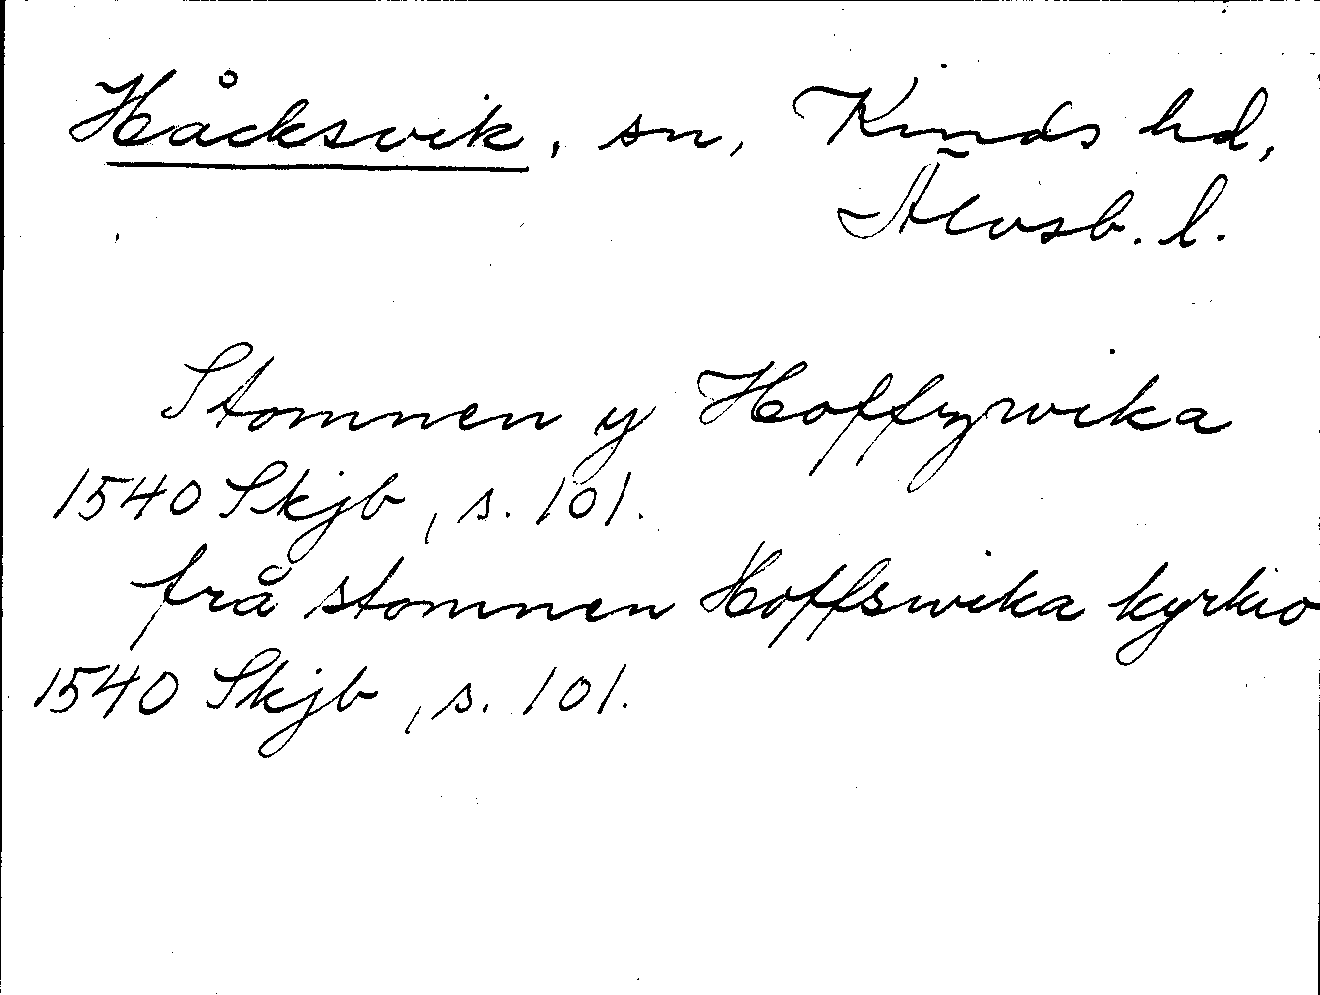 Håcksvik, sn, Kinds hd,
Älvsb. l.
Stomnen y Hoffzwika
1540 Skjb, s. 101.
frå stomnen Hoffswika kyrkio
1540 Skjb, s. 101.